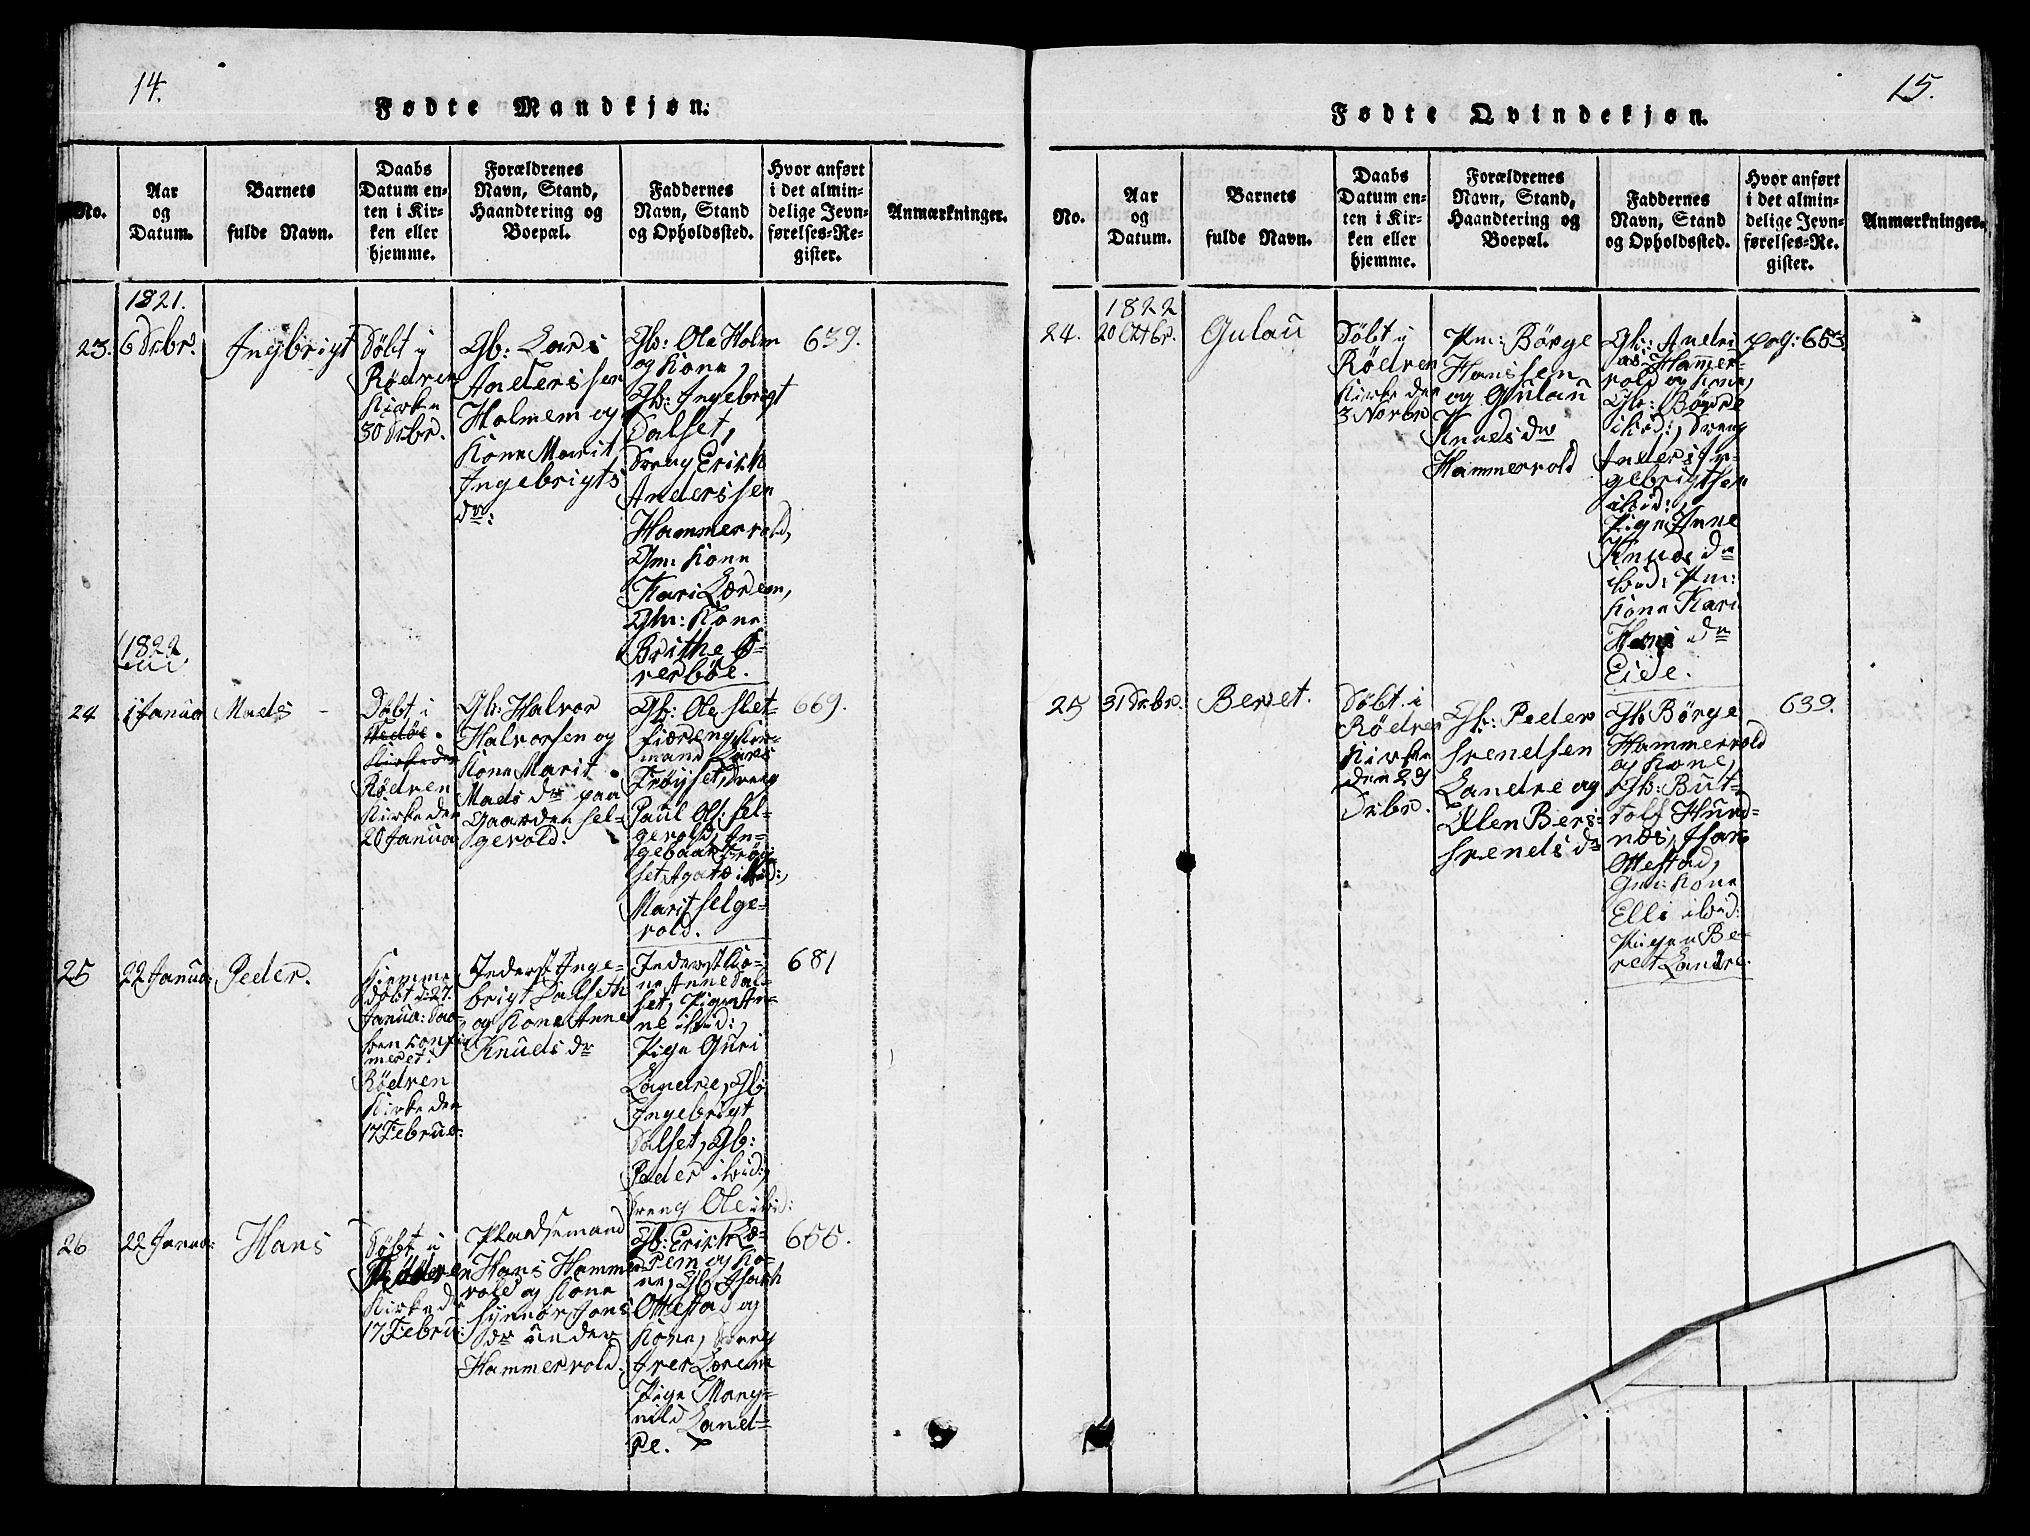 14.
Fødte Mandkjøn.
No.
Aar
og
Datum.
Barnets
fulde Navn.
Daabs
Datum en-
ten i Kir-
ken eller
hjemme.
Forældrenes
Navn, Stand,
Haandtering og
Boepæl.
Faddernes
Navn, Stand
og Opholdssted.
Hvor anført
i det almin-
delige Jevn-
førelses-Re-
gister.
Anmærkninger.
1821.
23.
6 Decbr.
Ingbrigt
Döbt i
Rödven
Kirke
30 Decbr.
Gb: Lars
Anderssen
Holmem og
Kone Marit
Ingebrigts
dr:
Gb: Ole Holm
og Kone,
Gb: Ingebrigt
Dalset,
Dreng Erich
Anderssen
Hammervold,
Gm: Kone
Kari Lærem,
Gm: Kone
Brithe Ö-
verböe.
639.
1822
24
1 Janua
Mads
Döbt i
Kirke den
Rödven
Kirke den
20 Janua
Gb: Halvor
Halvorsen og
Kone Marit
Mads dr paa
Gaarden Sel-
gevold.
Gb: Ole Slet-
mand Lars
Fröyset, Dreng
Paul Ols: Sel-
gevold, In-
gebaar Fröy-
set, Agate ibid:,
Marit Selge-
vold.
669.
25
22 Janua
Peder.
Hiemme
döbt d: 27
Janua: Daa-
ben confir
meret i
Rödven
Kirke den
17 Februa:
Inderst Inge-
brigt Dalseth
og Kone Anne
Knuds dr
Inderst Ko-
ne Anne Dal-
set, Pige An-
ne ibid:,
Pige Guri
Landre, Gb:
Ingebrigt
Dalset, Gb:
Peder ibid:,
Dreng Ole ibid:
681
26
22 Janua:
Hans
Döbt i
Rödven
Kirke den
17 Februa:
Pladsemand
Hans Hamme
vold og Kone
Synnöv Jons
dr under
Hammervold.
Gb: Erich Læ-
rem og Ko-
ne, Gb: Isach
Ottestad og
Kone, Dreng
Iver Lærem
Pige Mag-
nild Land-
re.
655.
15.
Fødte Qvindekjøn.
No.
Aar
og
Datum.
Barnets
fulde Navn.
Daabs
Datum en-
ten i Kir-
ken eller
hjemme.
Forældrenes
Navn, Stand,
Haandtering og
Boepæl.
Faddernes
Navn, Stand
og Opholdssted.
Hvor anført
i det almin-
delige Jevn-
førelses-Re-
gister.
Anmærkninger.
1822
24.
20 Octbr.
Gulau
Döbt i
Rödven
Kirke den
3 Novbr
Pm: Börge
Hanssen
og Gulau
Knuds dr
Hammervold
Gb: Andri
as Hammer-
vold og Kone,
Gb: Börre
ibid:, Dreng
Anders In-
gebrigtsen
ibid:,
Pige Anne
Knuds dr
ibid: Pm:
Kone Kari
Hans dr
Eide.
pag: 653.
25
31 Decbr.
Beret.
Döbt i
Rödven
Kirke
den 29
Decbr.
Gb: Peder
Svendsen
Landre og
Ellen Bers:
Svends dr
Gb: Börge
Hammervold
og Kone,
Gb: But-
tolf Hund-
næs, Isac
Ottestad,
Gm: Kone
Elli ibid:
Pigen Be-
ret Landre.
639.